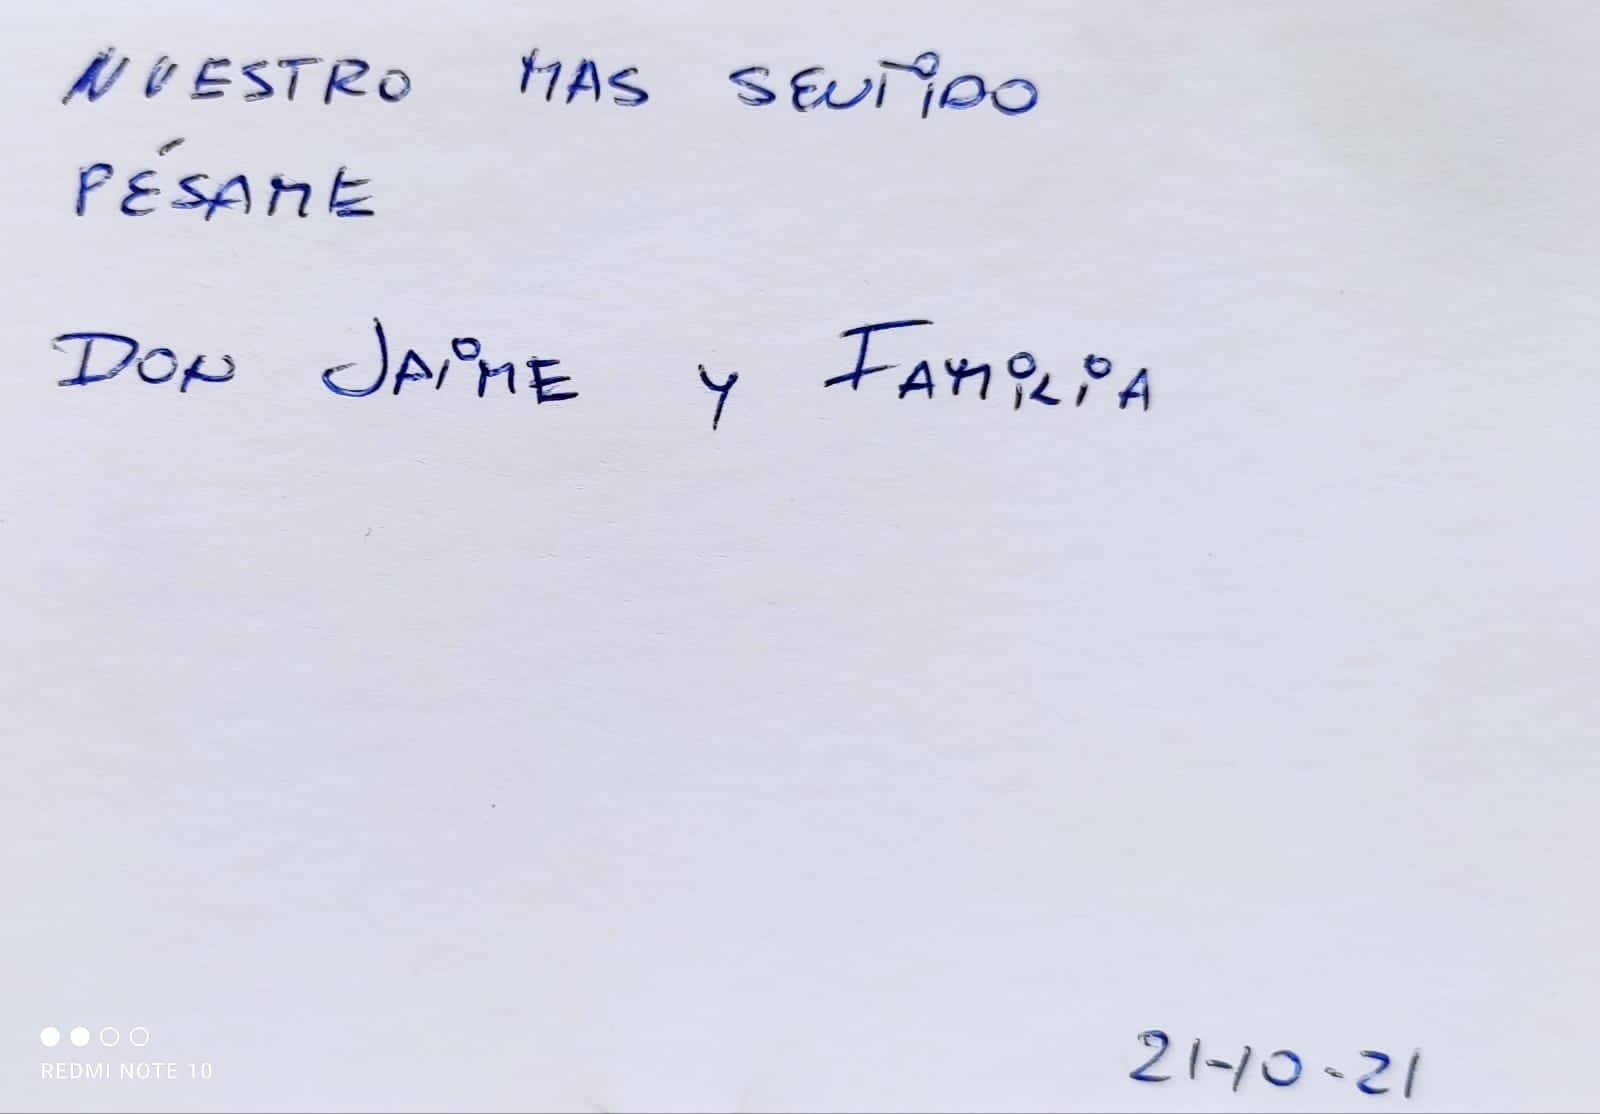 NUESTRO MAS SENTIDO
PÉSAME
DON JAIME Y FAMILIA
21-10-21
REDMI NOTE 10